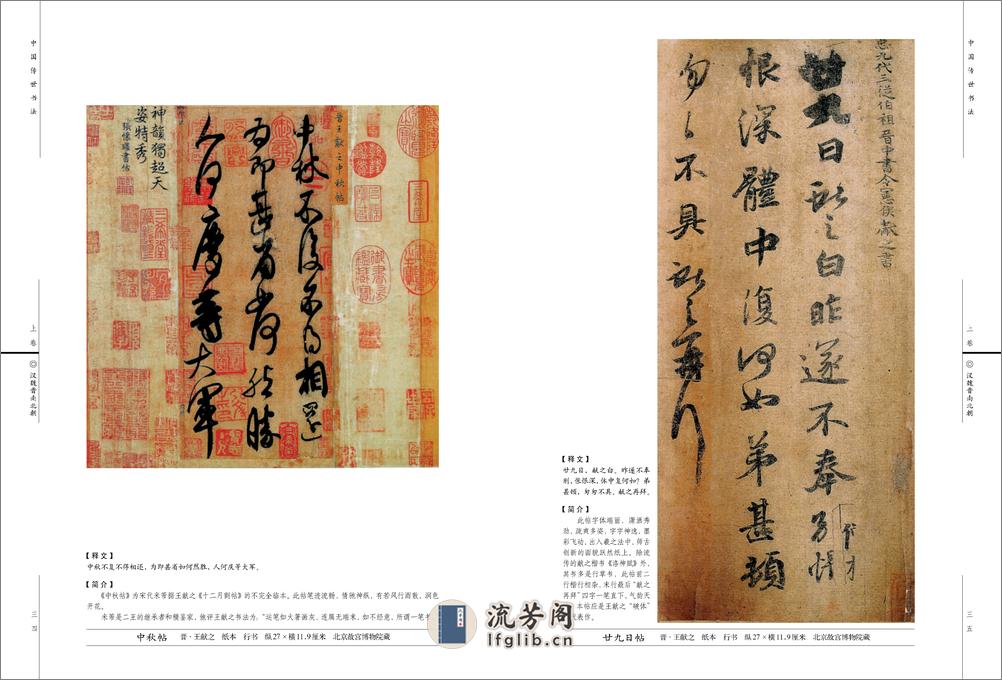 中国传世书法
上卷
◎汉魏晋南北朝
三四
晋王献之中秋帖
中秋不复不得相还
为即甚省如何然胜
人何庆等大军
神韻獨超天
姿特秀
【释文】
中秋不复不得相还，为即甚省如何然胜，人何庆等大军。
【简介】
《中秋帖》为宋代米芾据王献之《十二月割帖》的不完全临本。此帖笔迹流畅，情驰神纵，有若风行雨散，润色
开花。
米芾是二王的继承者和模鉴家，他评王献之书法为，“运笔如火箸画灰，连属无端末，如不经意，所谓一笔书
中秋帖 晋·王献之 纸本 行书 纵27×横11.9厘米 北京故宫博物院藏
中国传世书法
上卷
◎汉魏晋南北朝
三五
九代三從伯祖晋中書令憲侯獻之書
廿九日獻之白昨遂不奉別悵
恨深體中復何如弟甚頓
匆匆不具獻之再拜
【释文】
廿九日，献之白。昨遂不奉
别，怅恨深，体中复何如？弟
甚顿，匆匆不具。献之再拜。
【简介】
此帖字体端丽，潇洒秀
劲，流爽多姿，字字神逸，墨
彩飞动，出入羲之法中，师古
创新的面貌跃然纸上。除流
传的献之楷书《洛神赋》外，
其书多是行草书，此帖前二
行楷行相杂，末行最后“献之
再拜”四字一笔直下，气韵天
本帖应是王献之“破体”
代表作。
廿九日帖 晋·王献之 纸本 行书 纵27×横11.9厘米 北京故宫博物院藏
流芳阁
lfglib.cn